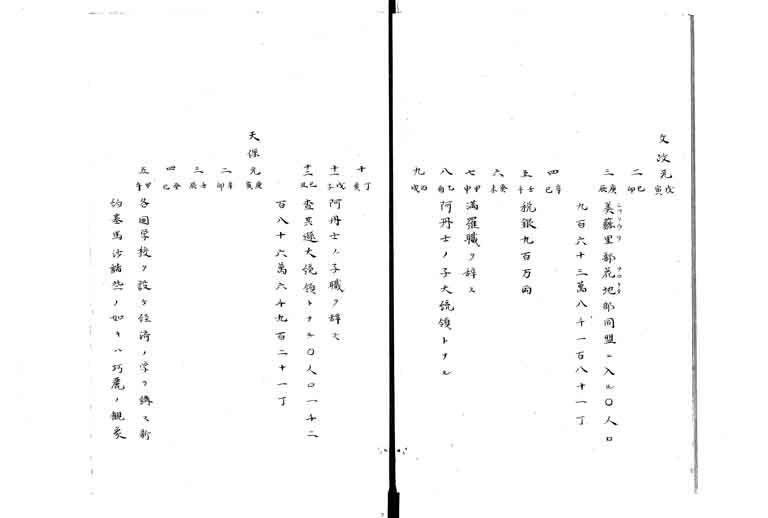 文政元戊寅
二己卯
三庚辰美蘇里部花地部同盟ニ入ル〇人口
九百六十三萬八千一百八十一丁
四辛巳
五壬午税銀九百万両
六癸未
七甲申満羅職ヲ辞ス
八乙酉阿丹士ノ子大統領トナル
九丙戌
十丁亥
十一戊子阿丹士ノ子職ヲ辞ス
十二己丑査其遜大統領トナル〇人口一千二
百八十六萬六千九百二十一丁
天保元庚寅
二辛卯
三壬辰
四癸巳
五甲午各国学校ヲ設ケ経済ノ学ヲ講ス新
約基馬沙諸些ノ如キハ巧麗ノ観象